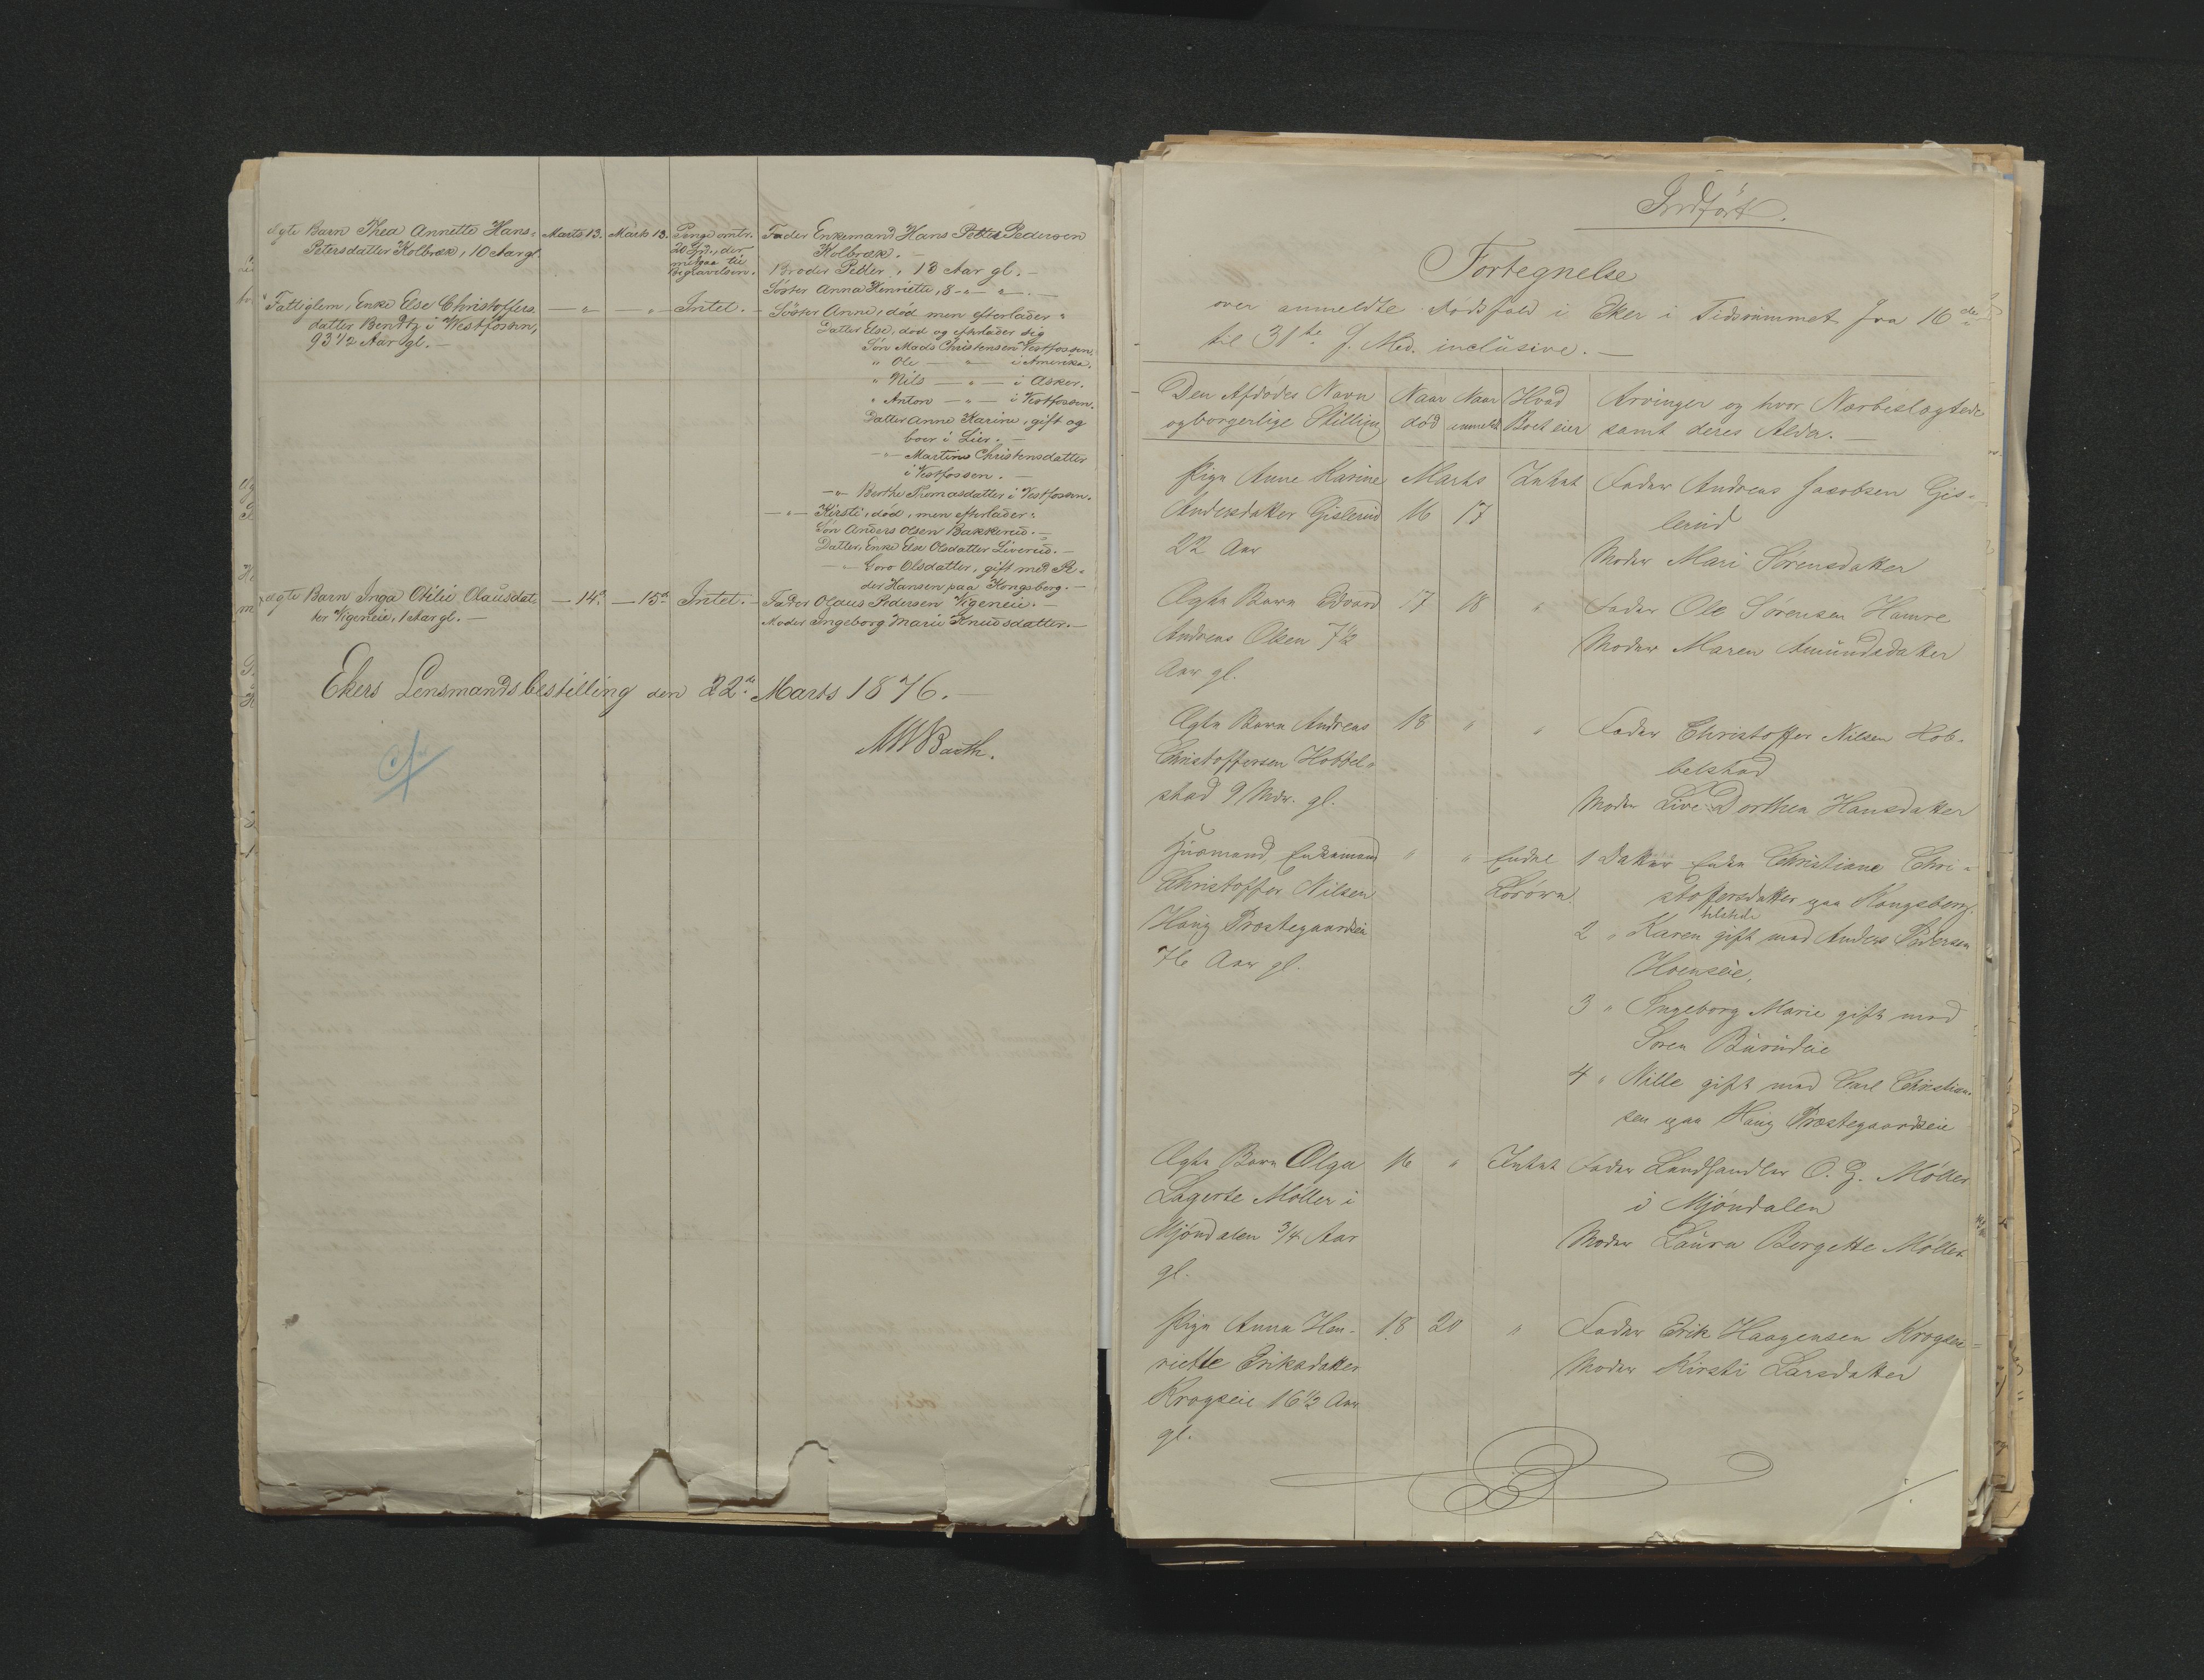 ægte Barn Thea Annette Hans-
Petersdatter Kolbræk, 10 Aar gl.
Marts 13.
Marts 13.
Penge omtr.
20 Spd., der
medgaa til
Begravelsen.
Fader Enkemand Hans Petter Pedersen
Kolbræk. —
Broder Petter, 13 Aar gl. —
Søster Anna Henriette, 8 — " — " —
Fattiglem, Enke Else Christoffers
datter Bendtz i Westfossen,
93 1/2 Aar gl. —
— " —
— " —
Intet. —
Søster Anne, død men efterlader "
Datter Else, død og efterlader sig
Søn Mads Christensen Vestfossen.
" Ole — " — i Amerika.
" Nils — " — i Asker.
" Anton — " — i Vestfossen.
Datter Anne Karine, gift og
boer i Lier. —
— " — Martine Christensdatter
i Vestfossen. —
— " — Berthe Thomasdatter i Vestfossen.
— " — Kirsti, død, men efterlader:
Søn Anders Olsen Bakkerud. —
Datter, Enke Else Olsdatter Liverud. —
— " — Goro Olsdatter, gift med Pe-
der Hansen paa Kongsberg. —
ægte Barn Inga Otilie Olausdat-
ter Vigeneie, 1 Aar gl. —
— 14de
— 15de
Intet. —
Fader Olaus Pedersen Vigeneie. —
Moder Ingeborg Marie Knudsdatter. —
Ekers Lensmandsbestilling den 22de Marts 1876. —
MWBarth.
Indført.
Fortegnelse
over anmeldte Dødsfald i Eker i Tidsrummet fra 16de
til 31te f. Md. inclusive. —
Den Afdødes Navn
og borgerlige Stilling
Naar
død
Naar
anmeldt
Hvad
Boet eier
Arvinger og hvor Nærbeslægtede
samt deres Alder. —
Pige Anne Karine
Andersdatter Gislerud
22 Aar
Marts
16
17
Intet
Fader Andreas Jacobsen Gis-
lerud
Moder Mari Sørensdatter
Ægte Barn Edvard
Andreas Olsen 7 1/2
Aar gl.
17
18
"
Fader Ole Sørensen Hamre
Moder Maren Amundsdatter
Ægte Barn Andreas
Christoffersen Hobbel-
stad 9 Mdr. gl.
18
"
"
Fader Christoffer Nilsen Hob-
belstad
Moder Live Dorthea Hansdatter
Huusmand, Enkemand
Christoffer Nilsen
Haug Præstegaardseie
76 Aar gl.
"
"
Endel
Løsøre.
1 Datter Enke Christiane Chri-
stoffersdatter paa Kongsberg.
2 " Karen gift med Anders Pedersen
Hoenseie.
3 " Ingeborg Marie gift med
Soren Burudeie
4 " Nille gift med Carl Christian-
sen paa Haug Præstegaardseie
Ægte Barn Olga
Lagerte Møller i
Mjøndalen 3/4 Aar
gl.
16
"
Intet
Fader Landhandler O. G. Møller
i Mjøndalen
Moder Laura Bergette Møller
Pige Anna Hen-
riette Eriksdatter
Krogseie 16 1/2 Aar
gl.
18
20
"
Fader Erik Haagensen Krogseie
Moder Kirsti Larsdatter